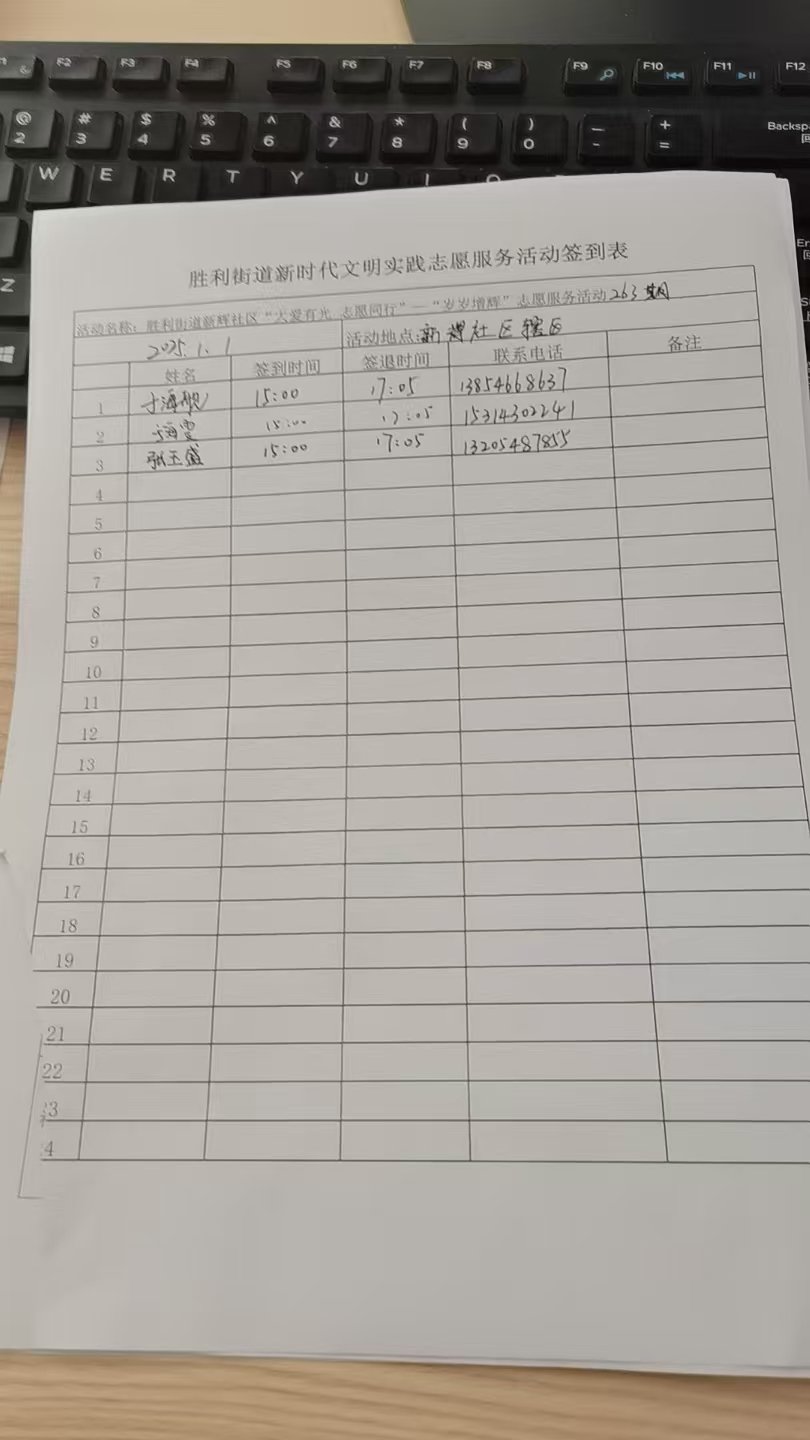 F2 F3 F4 F5 F6 F7 F8 F9 F10 F11 F12
@ # $ % ^ & * ( ) — + Backsp
2 3 4 5 6 7 8 9 0 - =
W E R T Y U I O
Z
胜利街道新时代文明实践志愿服务活动签到表
活动名称：胜利街道新辉社区“大爱有光 志愿同行”—“岁岁增辉”志愿服务活动263期
2025.1.1 活动地点:新辉社区辖区
姓名 签到时间 签退时间 联系电话 备注
1 15:00 17:05 13854668637
2 15:00 17:05 15314302241
3 张玉盛 15:00 17:05 13205487855
4
5
6
7
8
9
10
11
12
13
14
15
16
17
18
19
20
21
22
23
4